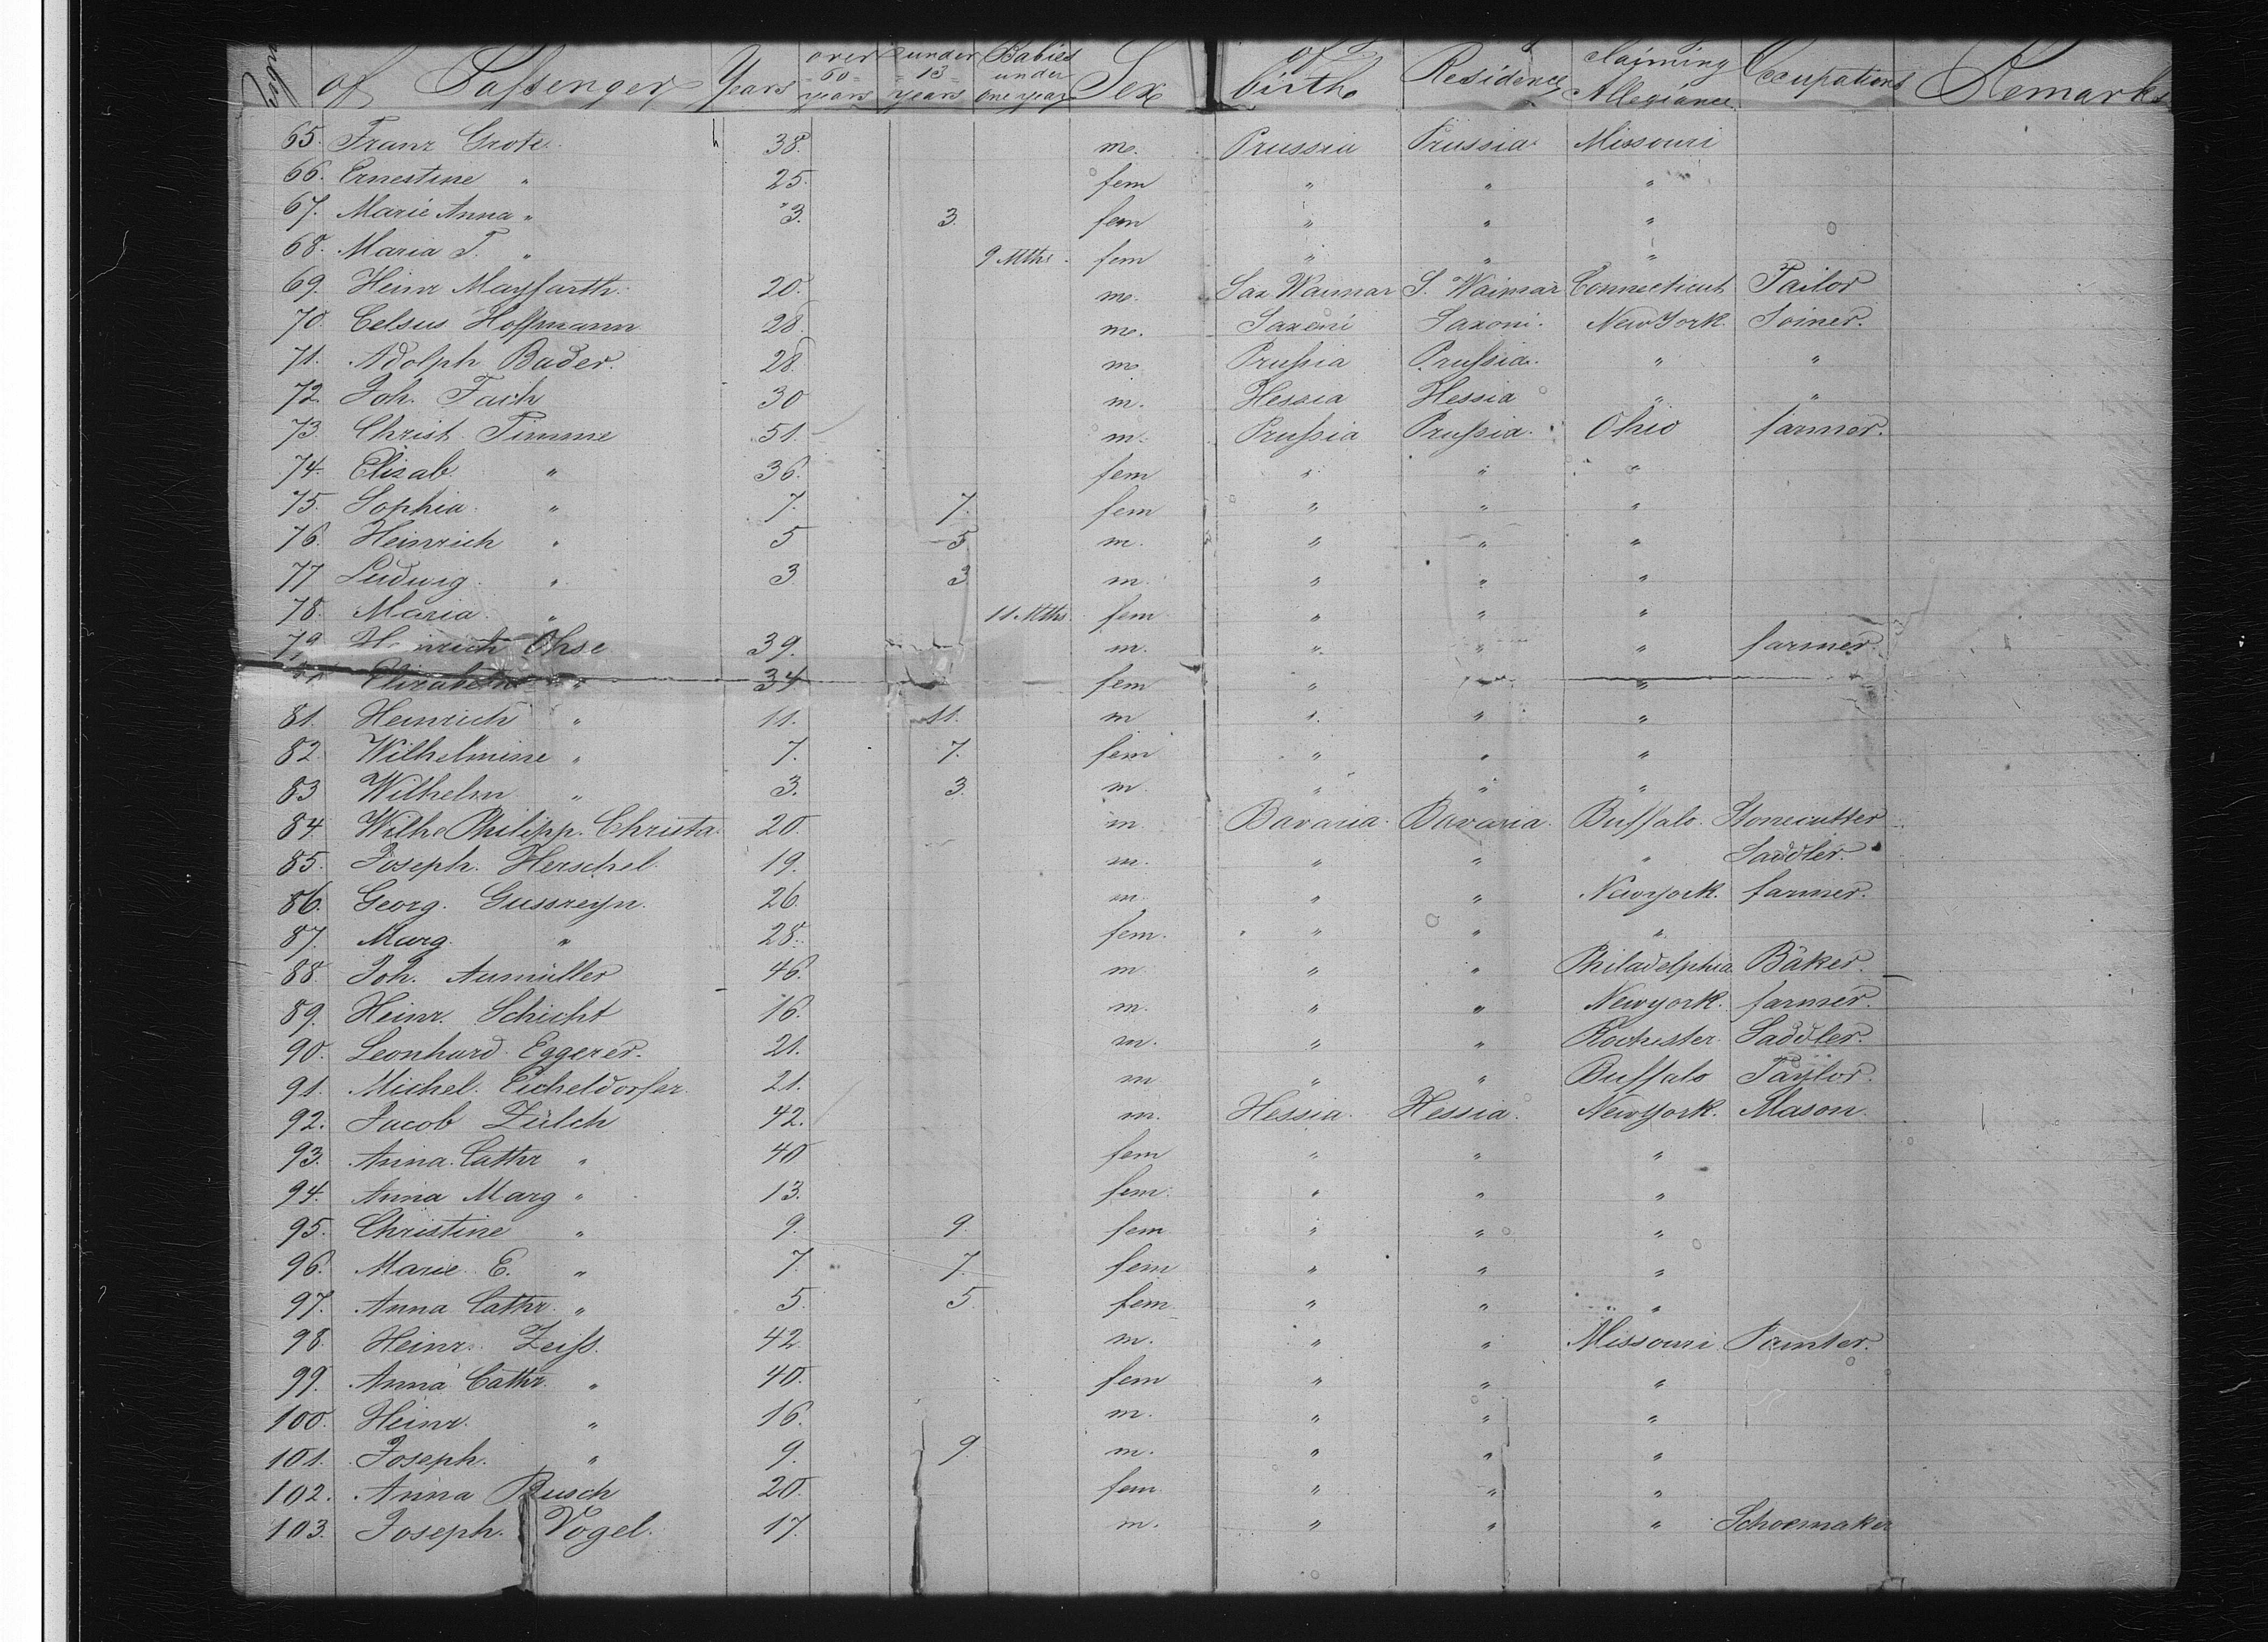 of Passenger Years over 60 years under 13 years Babies under one year Sex of birth Residence claiming Allegiance Occupations Remarks
65. Franz Grote 38. m. Prussia Prussia Missouri
66. Ernestine " 25. fem " " "
67. Marie Anna " 3. 3. fem " " "
68. Maria T. " 9 Mths. fem " " "
69. Heinr Mayfarth 20. m. Sax Waimar S. Waimar Connecticut Tailor
70. Celsus Hoffmann 28. m. Saxoni Saxoni. New York. Joiner.
71. Adolph Bader. 28. m Prussia Prussia. " "
72. Joh. Fach 30 m. Hessia Hessia " "
73. Christ. Timme 51. m. Prussia Prussia. Ohio farmer.
74. Elizab. " 36. fem " " "
75. Sophia. " 7. 7. fem " " "
76. Heinrich " 5 5 m. " " "
77 Ludwig. " 3 3 m. " " "
78. Maria " 11 Mths. fem " " "
79 Heinrich Ohse 39. m. " " " farmer.
Elizabeth " 34 fem " " "
81. Heinrich " 11. 11. m " " "
82. Wilhelmine " 7. 7. fem " " "
83 Wilhelm " 3. 3. m. " " "
84 Wilhe Philipp. Christa. 20. m Bavaria. Bavaria. Buffalo. Stonecutter
85. Joseph. Herschel. 19. m. " " " Saddler.
86. Georg. Gussregn. 26. m " " Newyork. farmer.
87. Marg. " 28. fem. " " "
88. Joh. Aumüller 46. m " " Philadelphia Baker.
89. Heinr. Schicht 16. m. " " Newyork. farmer.
90. Leonhard. Eggerer. 21. m. " " Rochester. Saddler.
91. Michel. Eicheldorfer. 21. m " " Buffalo Taylor.
92. Jacob Zülch 42. m. Hessia. Hessia. New York. Mason.
93. Anna. Cathr " 40 fem " " "
94. Anna Marg " 13. fem. " " "
95. Christine " 9. 9. fem " " "
96. Marie. E. " 7 7. fem " " "
97. Anna Cathr. " 5. 5 fem " " "
98. Heinr. Zeiss. 42 m. " " Missouri Painter.
99. Anna Cathr. " 40. fem " " "
100. Heinr. " 16. m. " " "
101. Joseph. " 9. 9. m. " " "
102. Anna Busch 20. fem. " " "
103. Joseph. Vogel. 17. m. " " " Schoemaker